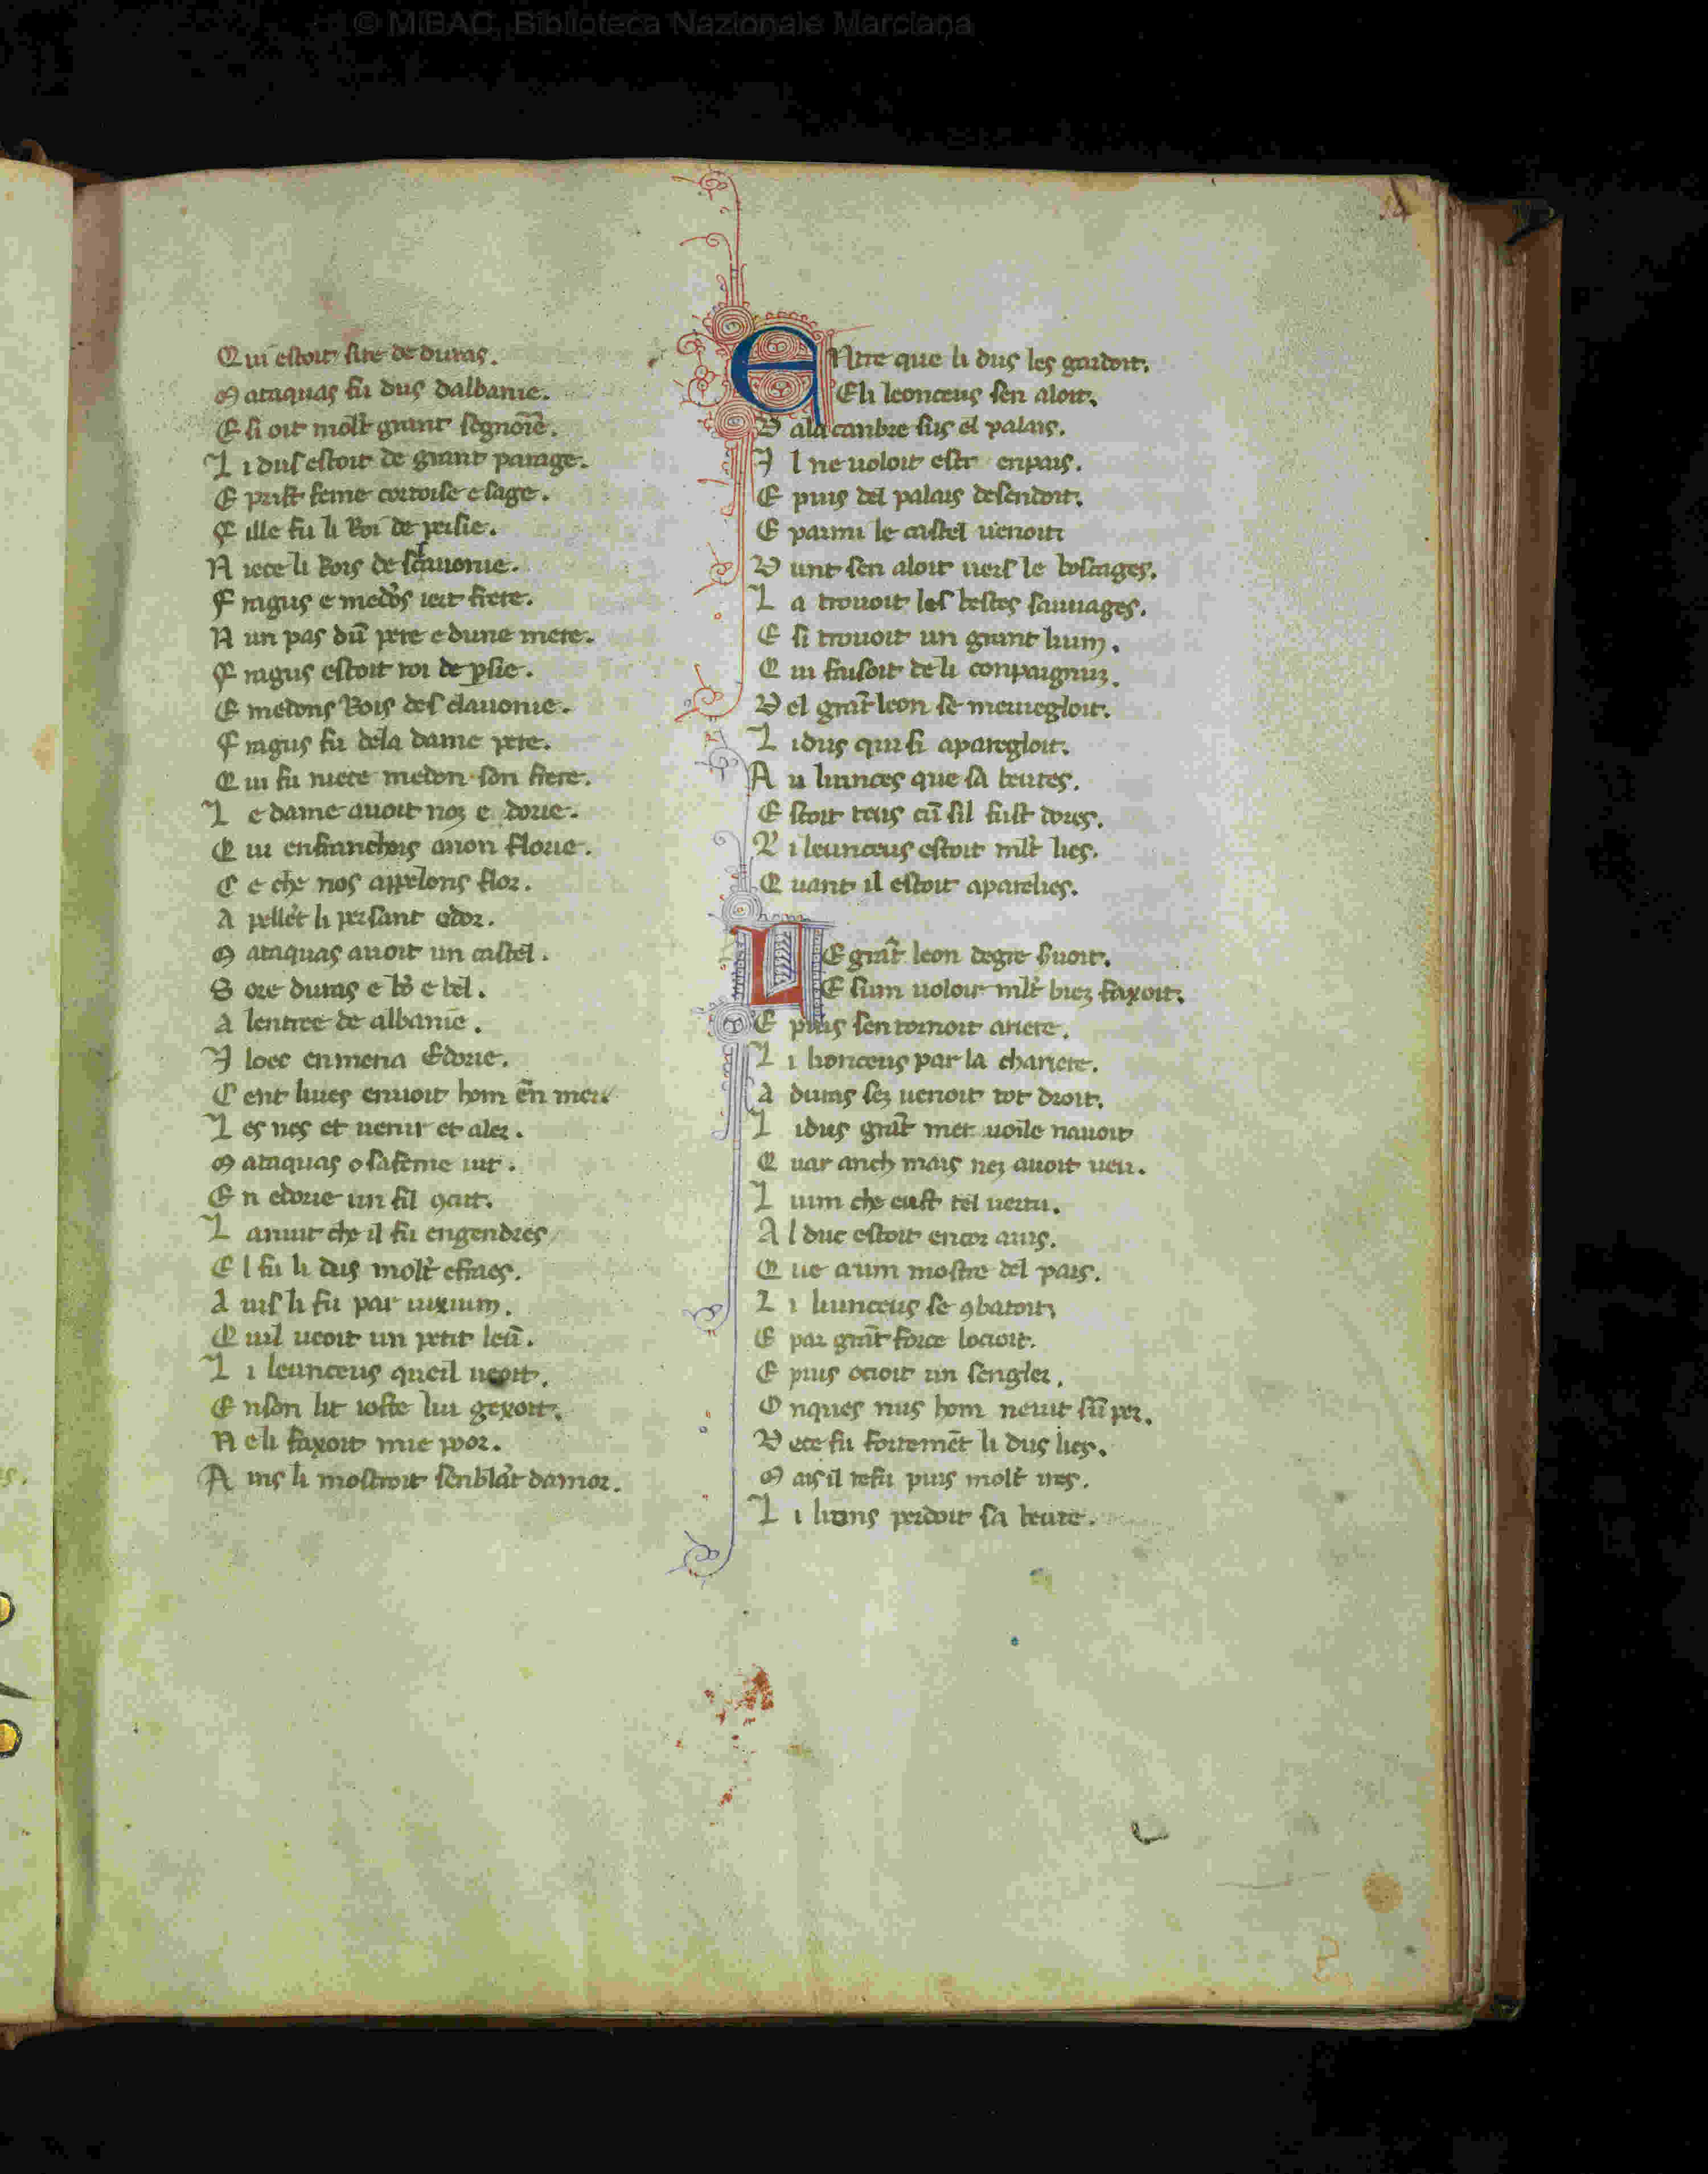 © MiBAC, Biblioteca Nazionale Marciana
Qui estoit sire de duras.
Mataquas fu dus dalbanie.
E si oit molt̄ grant segnorie.
Li dus estoit de grant parage.
E prist feme cortoise e sage.
Fille fu li Roi de persie.
Niece li Rois de sclauonie.
Fragus e medōs iert frere.
Nun pas dū pere e dune mere.
Fragus estoit roi de ꝑsie.
E medons Rois desclauonie.
Fragus fu dela dame pere.
Qui fu niece medon son frere.
Le dame auoit noꝫ edorie.
Qui enfranchois anon florie.
Ce che nos appelons flor.
Apellēt li persant edor.
Mataquas auoit un castel.
Sore duras e bō e bel.
Alentree de albanie.
Iloec enmena Edorie.
Cent liues enuoit hom ēn mer
Les nes et uenir et aler.
Mataquas o sa feme iut.
En edorie un fil ꝯcut.
Lanuit che il fu engendres
El fu li dus molt̄ efraes.
Auis li fu par uixium.
Quil ueoit un petit leū.
Li leunceus queil ueoit.
Enson lit ioste lui gexoit.
Neli faxoit mie poor.
Ains li mostroit senblāt damor.
ENtre que li dus les gardoit.
Eli leonceus sen aloit.
Dala canbre sus el palais.
Il ne uoloit estr enpais.
E puis del palais desendoit.
E parmi le castel uenoit
Dunt sen aloit uers le boscages.
La trouoit les bestes sauuages.
E si trouoit un grant lium.
Qui faisoit de li conpaignuꝫ.
Del grāt leon se meruegloit.
Li dus qui si aparegloit.
Au liunces que sa teures.
Estoit teus cū sil fust dores.
Li leunceus estoit mlt̄ lies.
Quant il estoit aparelies.
LE grāt leon degre suoit.
E sium uoloir mlt̄ bieꝫ faxoit.
E puis sen tornoit ariere.
Li lionceus par la chariere.
A duras seꝫ uenoit tot droit.
Li dus grāt mer uoile nauoit
Quar anch mais neꝫ auoit ueu.
Lium che eust tel uertu.
Al duc estoit encor auis.
Que aum mostre del pais.
Li liunceus se ꝯbatoit
E par grāt force locioit.
E puis ocioit un sengler.
Onques nus hom neuit sū per.
Dece fu fortemēt li dus lies.
Mais il refu puis molt̄ ires.
Li lions perdoit sa teure.